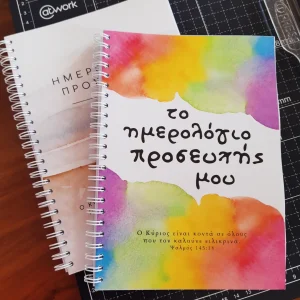 @work
ΗΜΕΡΟ
ΠΡΟΣ
το
ημερολόγιο
προσευχής
μου
Ο Κύριος είναι κοντά σε όλους
που τον καλούνε ειλικρινά.